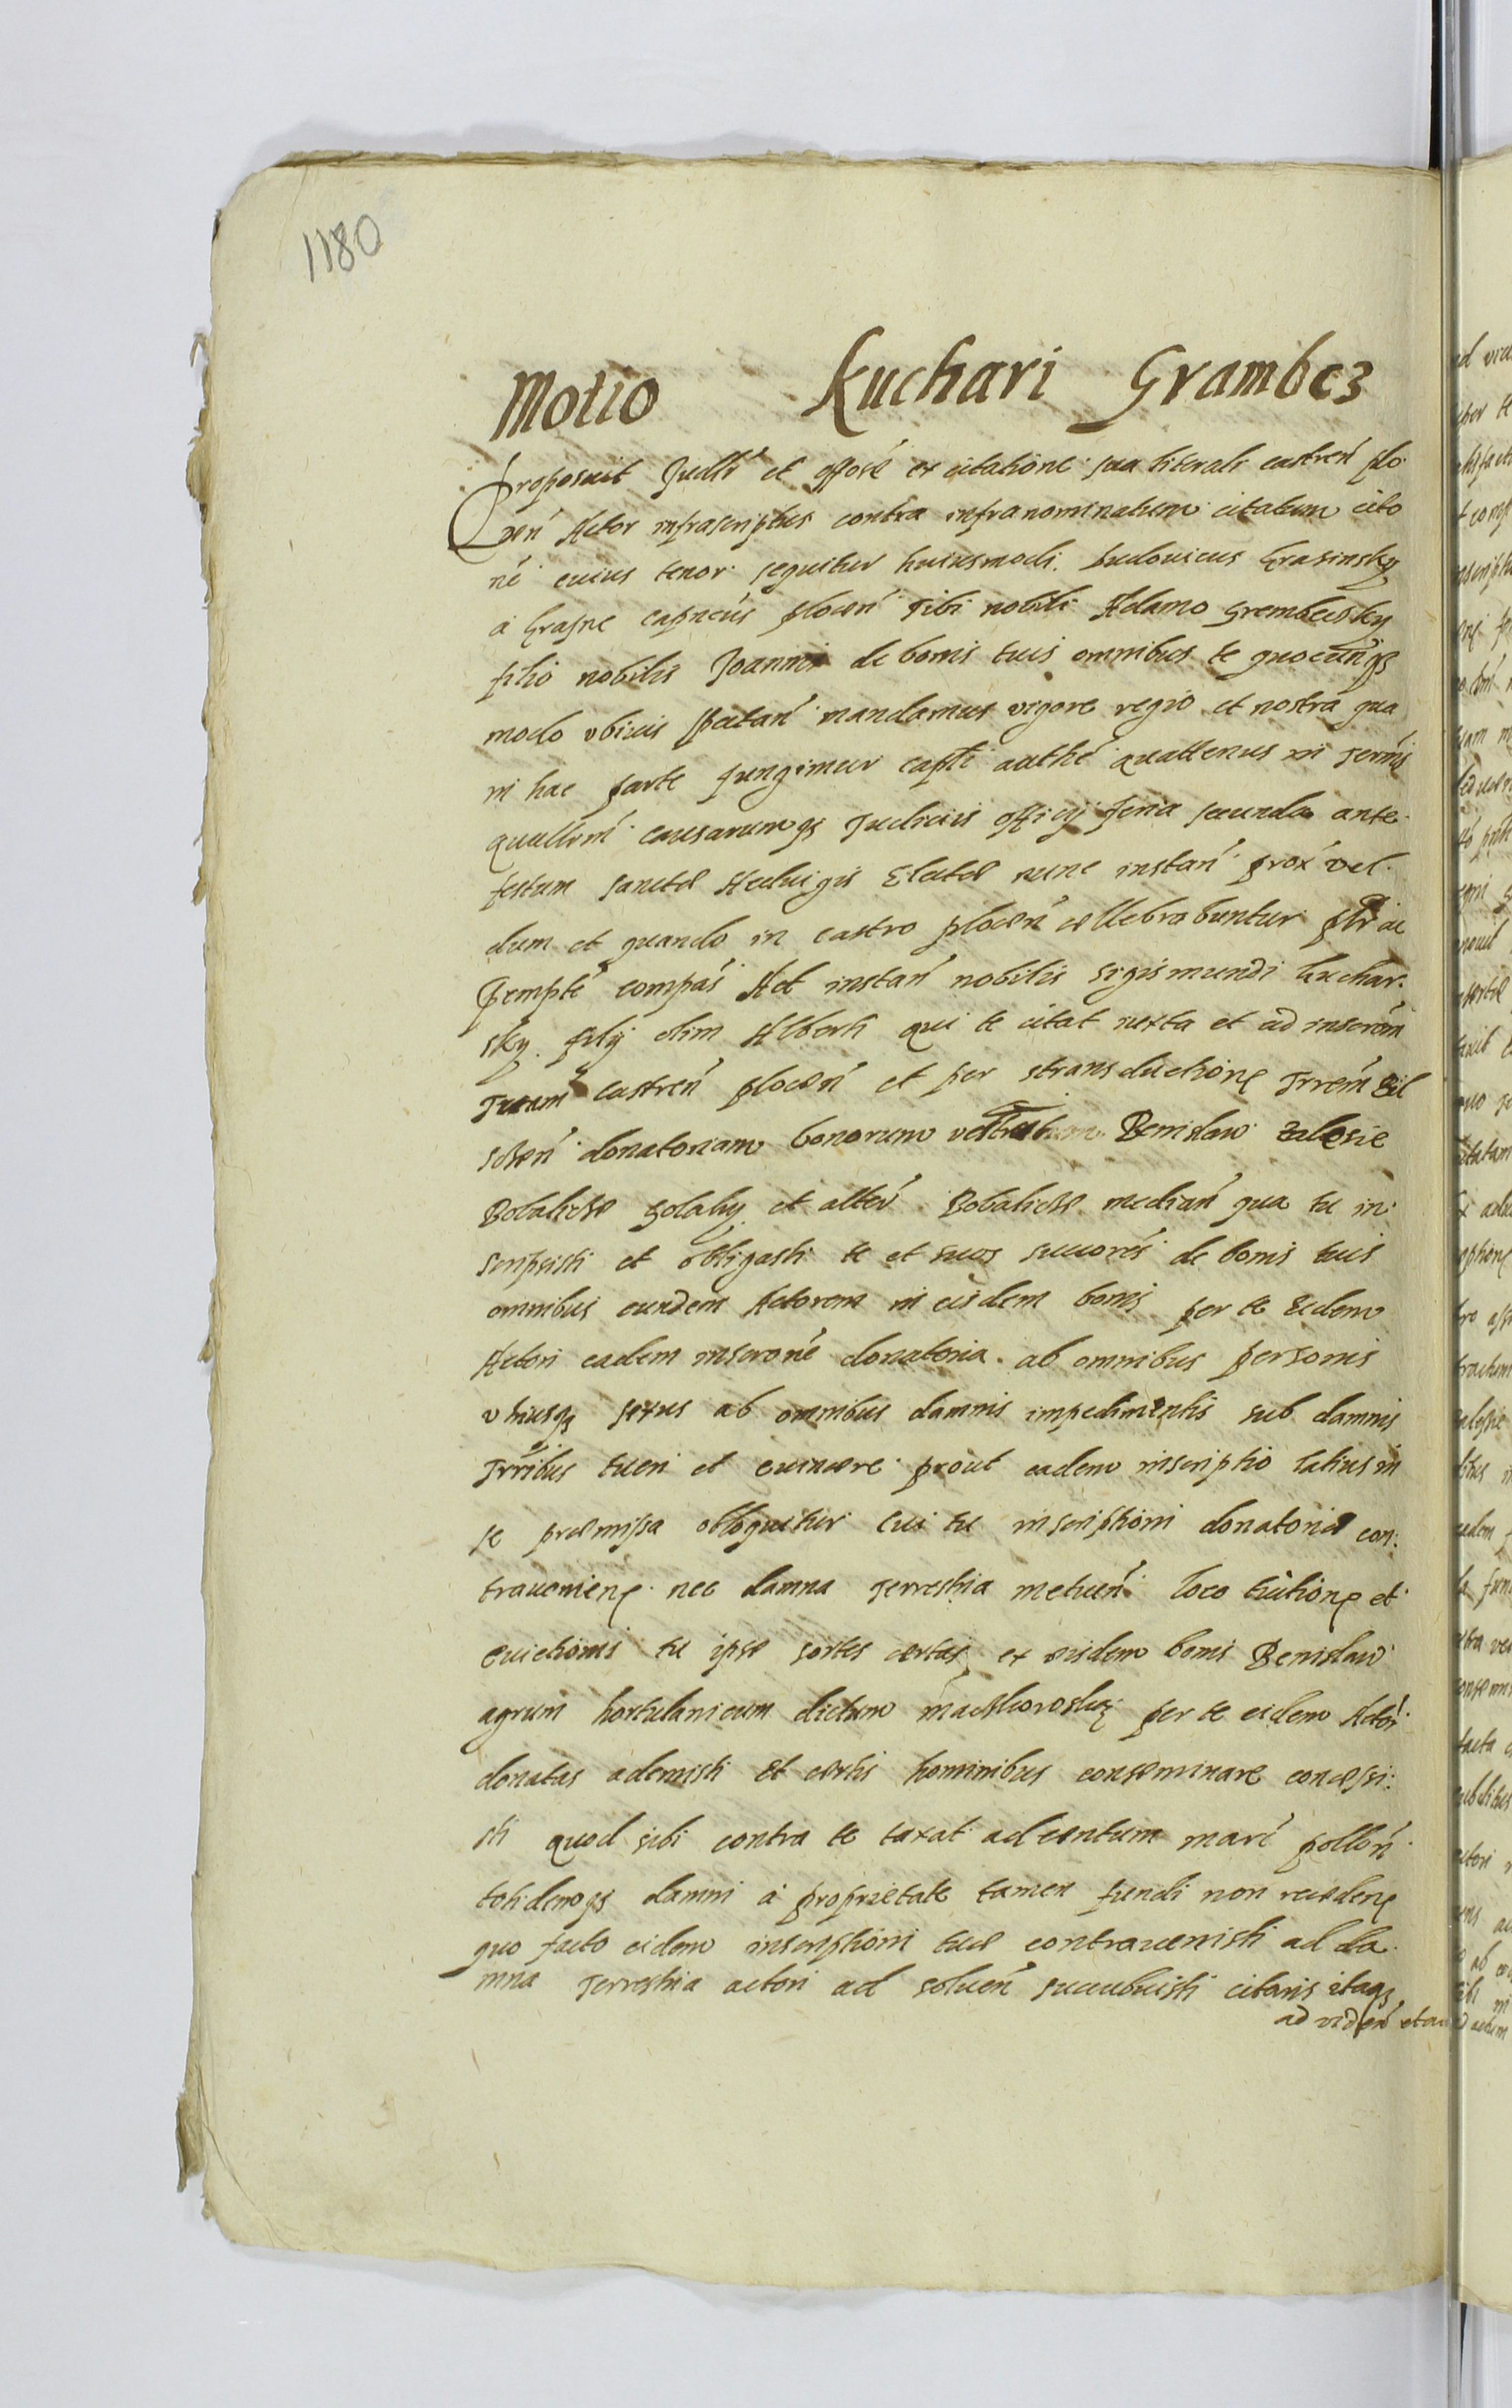 1180
Motio Kuchari Grambcz
Proposuit Judlr et offose ex citatione sua literali castren plo
cen Actor infrascriptus contra infranominatum citatum cito
né cuius tenor sequitur huiusmodi. Ludovicus Crasinsky
à Crasne capneus plocen Tibi nobili Adamo Grembeczky
filio nobilis Joannis de bonis tuis omnibus te quocunqz
modo ubivis spectan mandamus vigore regio et nostra qua
in hac parte fungimur capli authe quattenus in termis
quaellem causarumqz Judiciis officy feria secunda ante
festum sanctæ Hedvigis Electæ nunc instan prox vel
dum et quando in castro plocen cellebrabuntur plr ac
pempte compas Ad instan nobilis Sigismundi Kuchar
sky fily olim Alberti qui te citat iuxta et ad inscrom
Tuam castren plocen et per transductione Trrem Bil
scen donatoriam bonorum Benislaw Zalesie
Bobalicze Golaky et alter Bobalicze median qua tu in
scripsisti et obligasti te et tuos succores de bonis tuis
omnibus eundem Actorem in eisdem bonis per te eidem
Actori eadem inscrone donatoria ab omnibus personis
utriusqz sexus ab omnibus damnis impedimentis sub damnis
Trribus tueri et evincere prout eadem inscriptio latius in
se præmissa obloquitur Cui tu inscriptioni donatoriæ con:
traveniens nec damna Terrestria metuen loco tuitionis et
evictionis tu ipse sortes certas ex eisdem bonis Benislaw
agrum hortulanicum dictum per te eidem Actori
donatas ademisti Et certis hominibus conseminare concessi:
sti quod sibi contra te taxat ad centum marc pollon
totidemqz damni à proprietate tamen fundi non recedens
quo facto eidem inscriptioni tuæ contravenisti ad da
mna Terrestria actori ad solven succubuisti citaris itaqz
ad viden et au